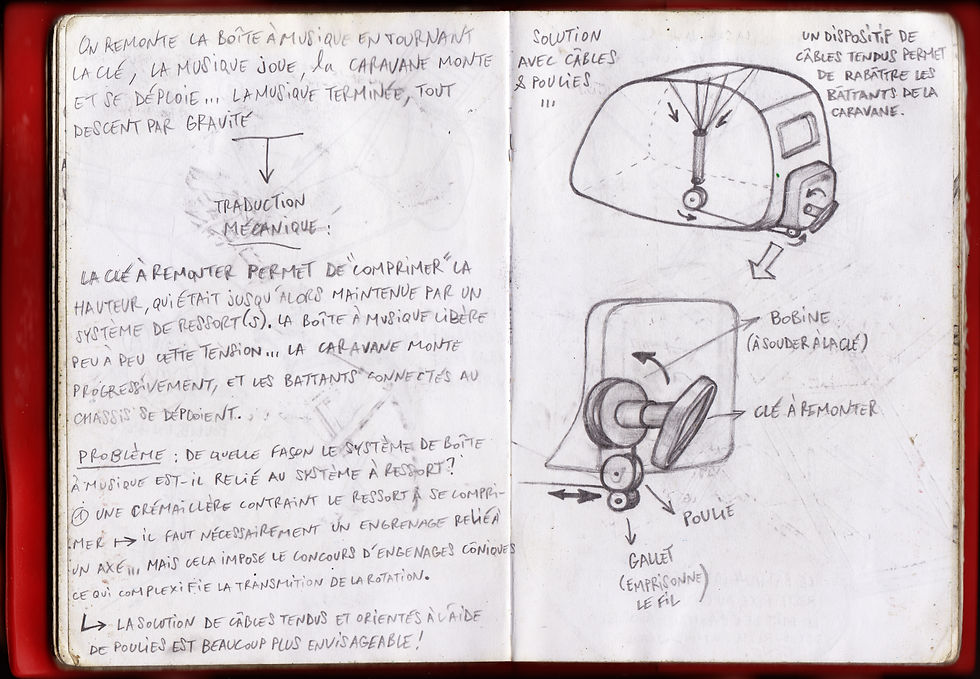 ON REMONTE LA BOÎTE À MUSIQUE EN TOURNANT
LA CLÉ, LA MUSIQUE JOUE, la CARAVANE MONTE
ET SE DÉPLOIE... LA MUSIQUE TERMINÉE, TOUT
DESCENT PAR GRAVITÉ
TRADUCTION
MÉCANIQUE :
LA CLÉ À REMONTER PERMET DE "COMPRIMER" LA
HAUTEUR, QUI ÉTAIT JUSQU'ALORS MAINTENUE PAR UN
SYSTÈME DE RESSORT(S). LA BOÎTE À MUSIQUE LIBÈRE
PEU À PEU CETTE TENSION... LA CARAVANE MONTE
PROGRESSIVEMENT, ET LES BATTANTS CONNECTÉS AU
CHASSIS SE DÉPLOIENT.
PROBLÈME : DE QUELLE FASON LE SYSTÈME DE BOÎTE
À MUSIQUE EST-IL RELIÉ AU SYSTÈME À RESSORT ?
① UNE CRÉMAILLÈRE CONTRAINT LE RESSORT À SE COMPRI-
MER ↦ IL FAUT NÉCESSAIREMENT UN ENGRENAGE RELIÉ À
UN AXE... MAIS CELA IMPOSE LE CONCOURS D'ENGENAGES CÔNIQUES
CE QUI COMPLEXIFIE LA TRANSMITION DE LA ROTATION.
↳ LA SOLUTION DE CÂBLES TENDUS ET ORIENTÉS À L'AIDE
DE POULIES EST BEAUCOUP PLUS ENVISAGEABLE !
SOLUTION
AVEC CÂBLES
& POULIES
...
UN DISPOSITIF DE
CÂBLES TENDUS PERMET
DE RABÂTTRE LES
BÂTTANTS DE LA
CARAVANE.
BOBINE
(À SOUDER À LA CLÉ)
CLÉ À REMONTER
POULIE
GALLET
(EMPRISONNE)
LE FIL